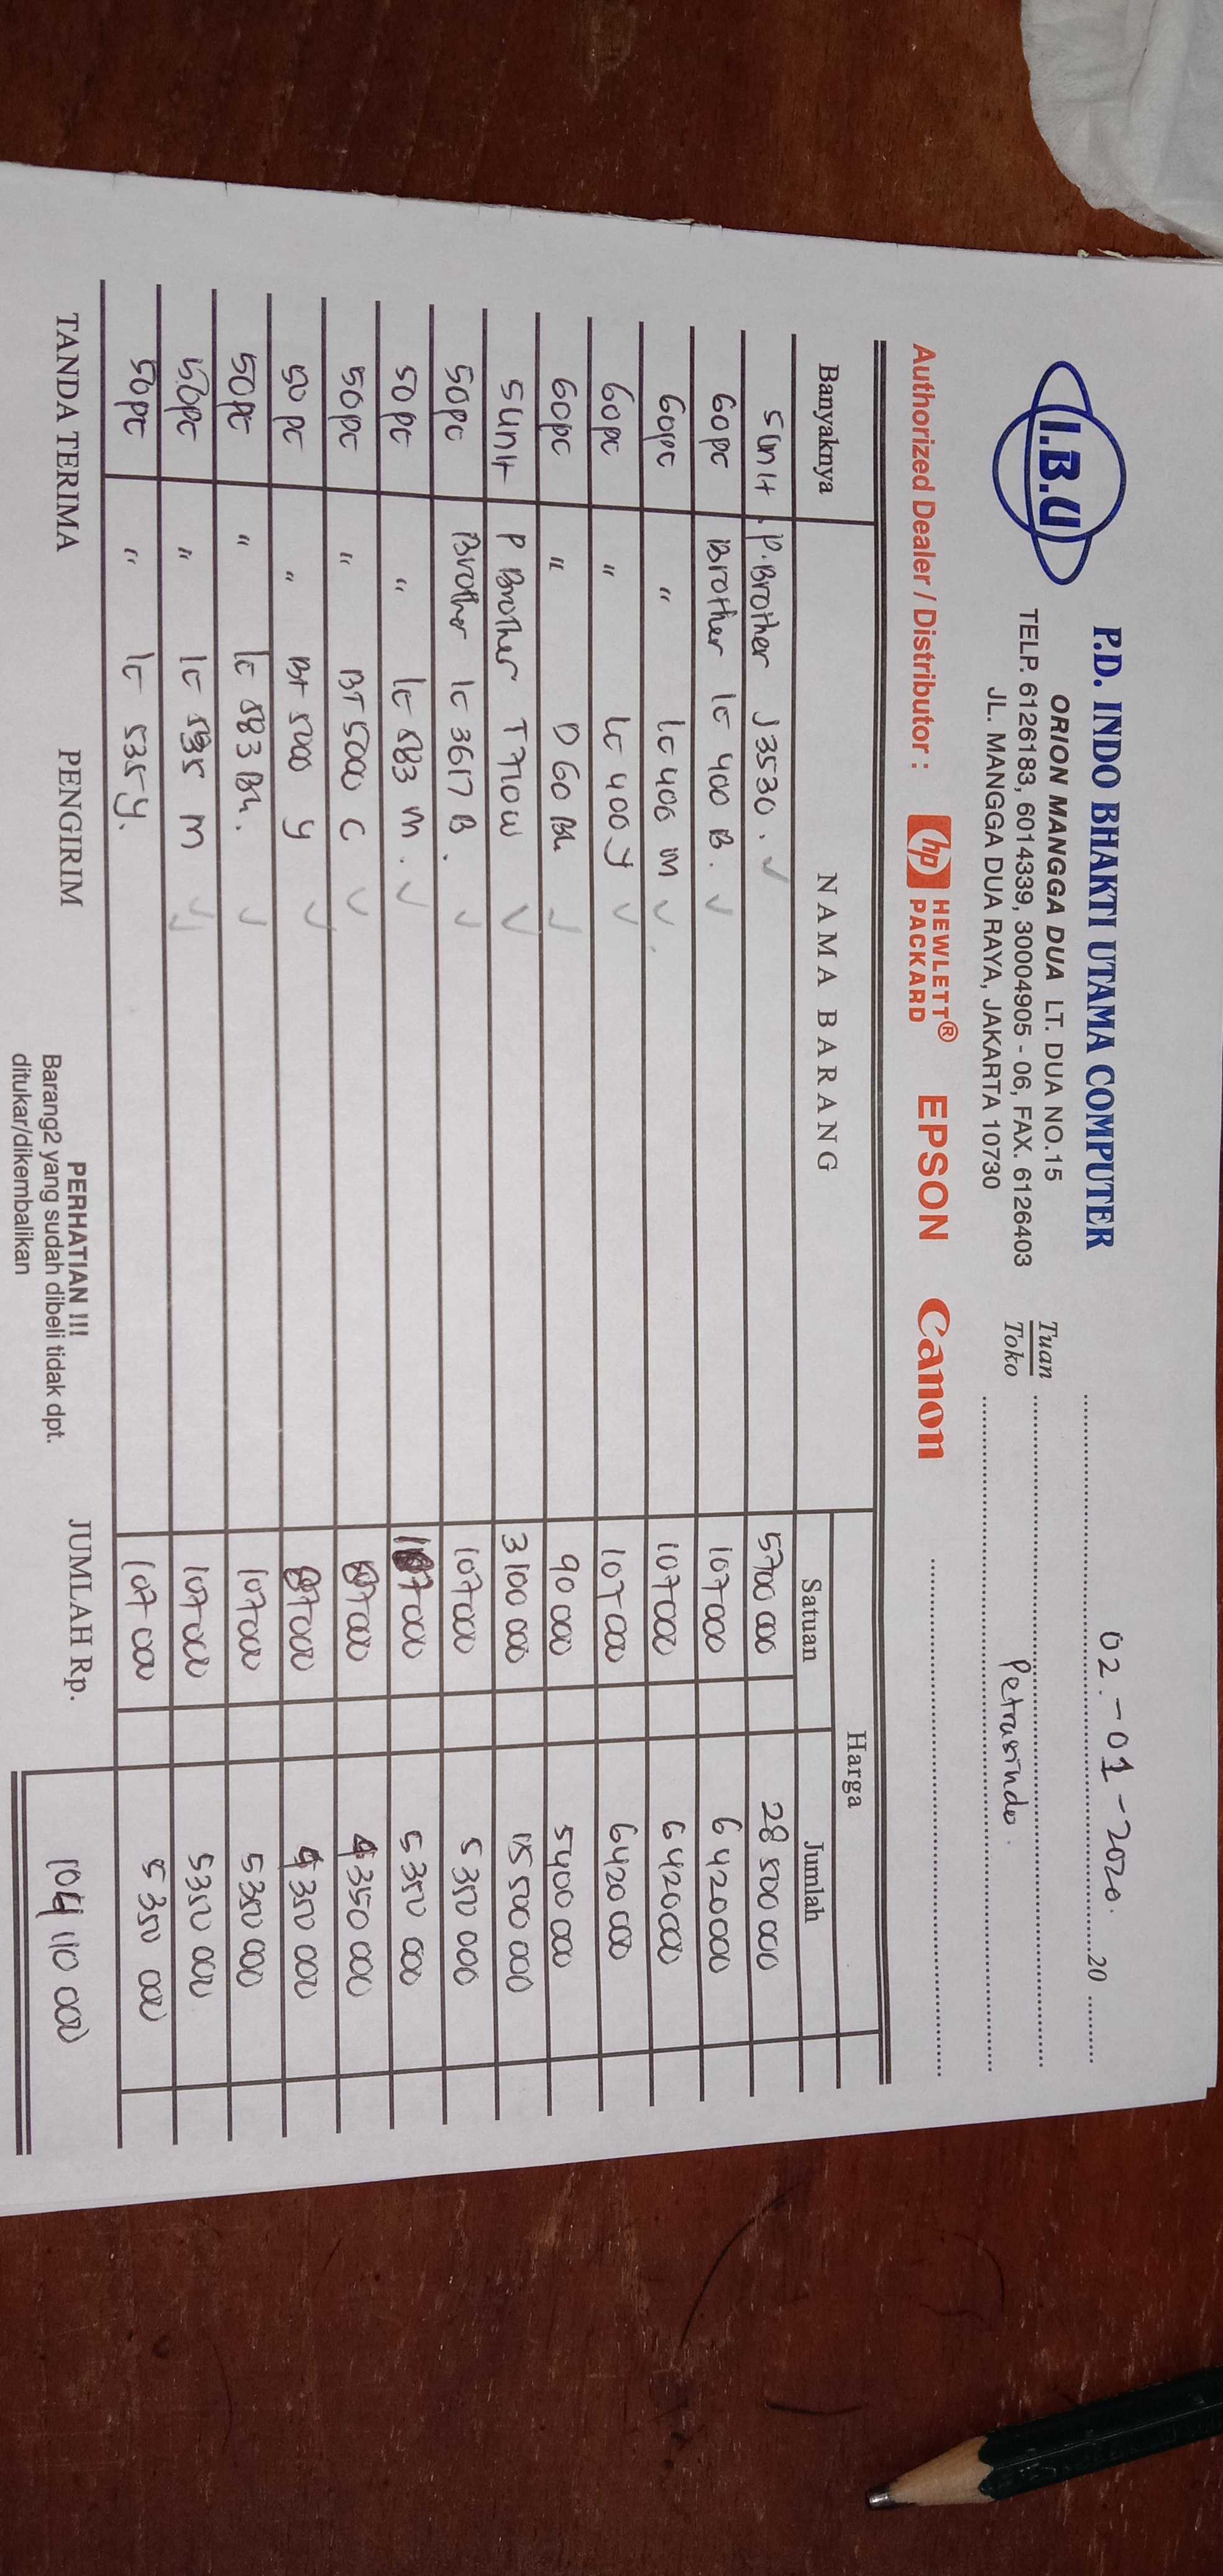 I.B.U
P.D. INDO BHAKTI UTAMA COMPUTER
ORION MANGGA DUA LT. DUA NO.15
TELP. 6126183, 6014339, 30004905 - 06, FAX. 6126403
JL. MANGGA DUA RAYA, JAKARTA 10730
02 - 01 - 2020. 20
Tuan
Toko
Petrusindo.
Authorized Dealer / Distributor : hp HEWLETT® PACKARD EPSON Canon
Banyaknya NAMA BARANG Harga
Satuan Jumlah
5 unit P. Brother J3530. ✓ 5700 000 28 500 000
60pc Brother lc 400 B. ✓ 107000 6 420000
60pc " lc 400 m ✓ 107000 6 420000
60pc " lc 400 y ✓ 107 000 6420 000
60pc " D 60 Bk ✓ 90 000 5400 000
5 unit P Brother T710W ✓ 3 100 000 15 500 000
50pc Brother lc 3617 B. ✓ 107000 5 350 000
50pc " lc 583 m. ✓ 107000 5 350 000
50pc " BT 5000 C ✓ 87000 4350 000
50 pc " BT 5000 y ✓ 87000 4 350 000
50pc " lc 583 Bk. ✓ 107000 5 350 000
50pc " lc 535 m ✓ 107000 5350 000
50pc " lc 535y. ✓ 107 000 5 350 000
TANDA TERIMA PENGIRIM JUMLAH Rp. 104 110 000
PERHATIAN !!!
Barang2 yang sudah dibeli tidak dpt.
ditukar/dikembalikan